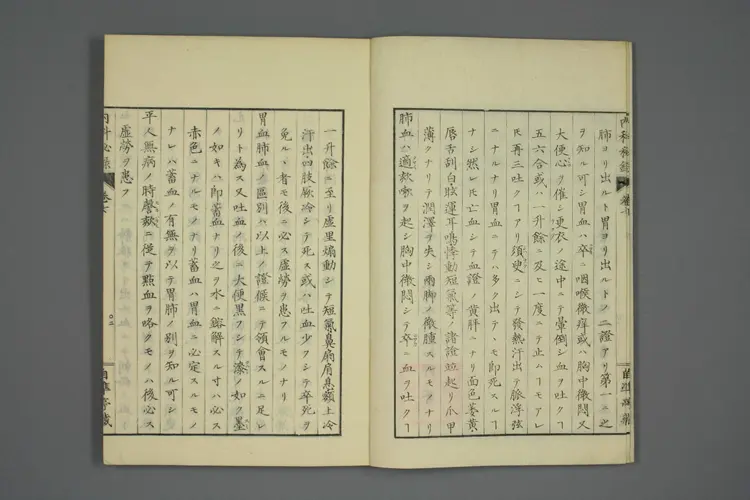 肺ヨリ出ルト胃ヨリ出ルトノ二證アリ第一ニ之
ヲ知ル可シ胃血ハ卒ニ咽喉微痒或ハ胸中微悶又
大便心ヲ催シ更衣ノ途中ニテ暈倒シ血ヲ吐クヿ
五六合或ハ一升餘ニ及ヒ一度ニテ止ハヿモアレ
㪽再三吐クヿアリ須臾ニシテ發熱汗出テ脈浮弦
ニナルナリ胃血ニテハ多ク出テヽモ即死スルヿ
ナシ然レ𪜈亡血シテ血證ノ黄胖ニナリ面色萎黄
唇舌刮白眩運耳鳴悸動短氣等ノ諸證起リ爪甲
薄クナリテ潤澤ヲ失シ兩脚ノ微腫スルモノナリ
肺血ハ適欬嗽ヲ起シ胸中微悶シテ卒ニ血ヲ吐クヿ
一升餘ニ至リ虚里煽動シテ短氣鼻扇肩息額上冷
汗出四肢厥冷シテ死ス或ハ吐血少フシテ卒死ヲ
免ルヽ者モ後ニ必ス虚勞ヲ患フルモノナリ
胃血肺血ノ區別ハ以上ノ證候ニテ領會スルニ足レ
リト為ス又吐血ノ後ニ大便黒フシテ漆ノ如ク墨
ノ如キハ即蓄血ナリ之ヲ水ニ鎔解スル寸ハ必ス
赤色ニナルモノナリ蓄血ハ胃血ニ必定スルモノ
ナレハ蓄血ノ有無ヲ以テ胃肺ノ別ヲ知ル可シ
平人無病ノ時謦欬ニ従テ點血ヲ咯クモノハ後必ス
虚勞ヲ患フ